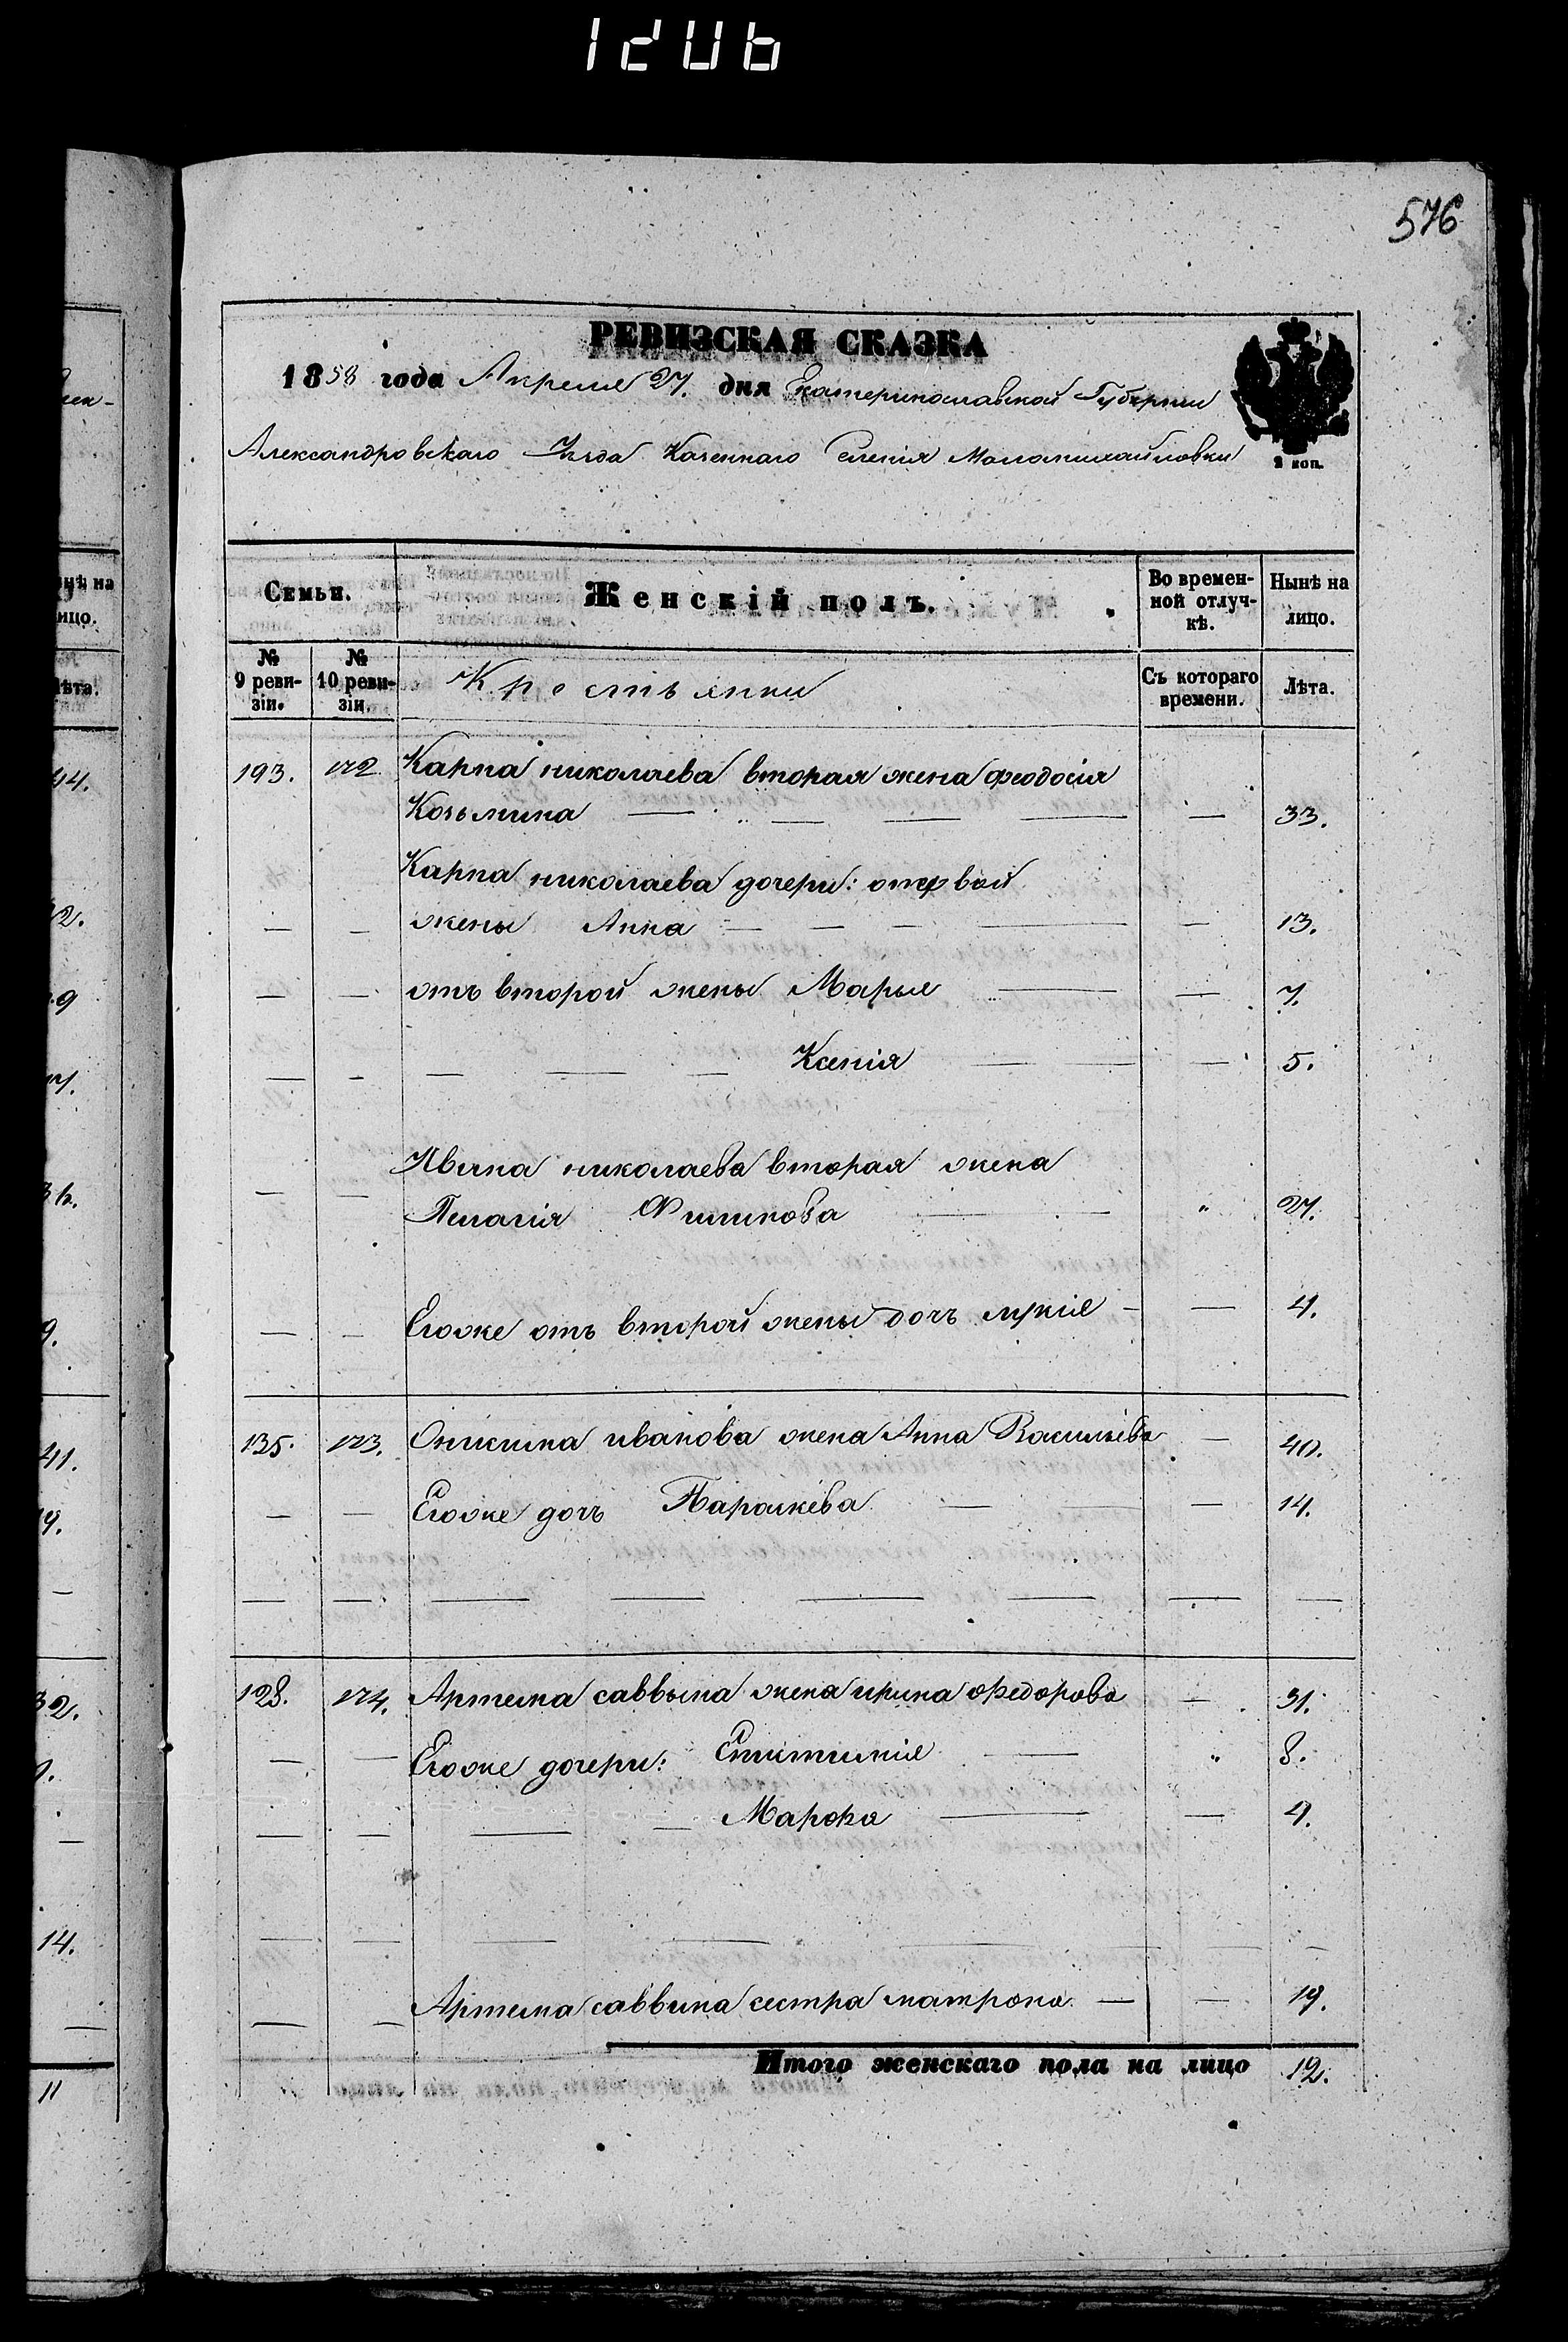 576
РЕВИЗСКАЯ СКАЗКА
1858 года Апреля 27. дня Екатеринославской Губернии
Александровскаго Уезда Казеннаго Селенія Маломихайловки
2 коп.
Семьи. Женскій полъ. Во времен-ной отлуч-кѣ. Нынѣ на лицо.
№ 9 реви-зіи. № 10 реви-зіи. Крестьянки Съ котораго времени. Лѣта.
193. 172 Карпа николаева вторая жена феодосія
Козьмина — — — — — 33.
Карпа николаева дочери: отпервой
— — жены Анна — — — — — 13.
— — отъ второй жены Марья — — 7.
— — — — — Ксенія — — 5.
— — Ивана николаева вторая жена
Пелагія Филипова — — " 27.
— — Егоже отъ второй жены дочь лукія — — 4.
135. 173. Онисима иванова жена Анна Васильева — 40.
— — Егоже дочь Параскева — — — 14.
— — — — — — — —
128. 174. Артема саввина жена ирина федорова — 31.
— — Егоже дочери: — " 8.
— — — — Марфа — — 4.
— — — — — — — —
— — Артема саввина сестра матрона — — 19.
Итого женскаго пола на лицо 12.
нѣ на
ицо.
ѣта.
44.
2.
9
7.
9.
41.
9.
—
32.
—
14.
—
11